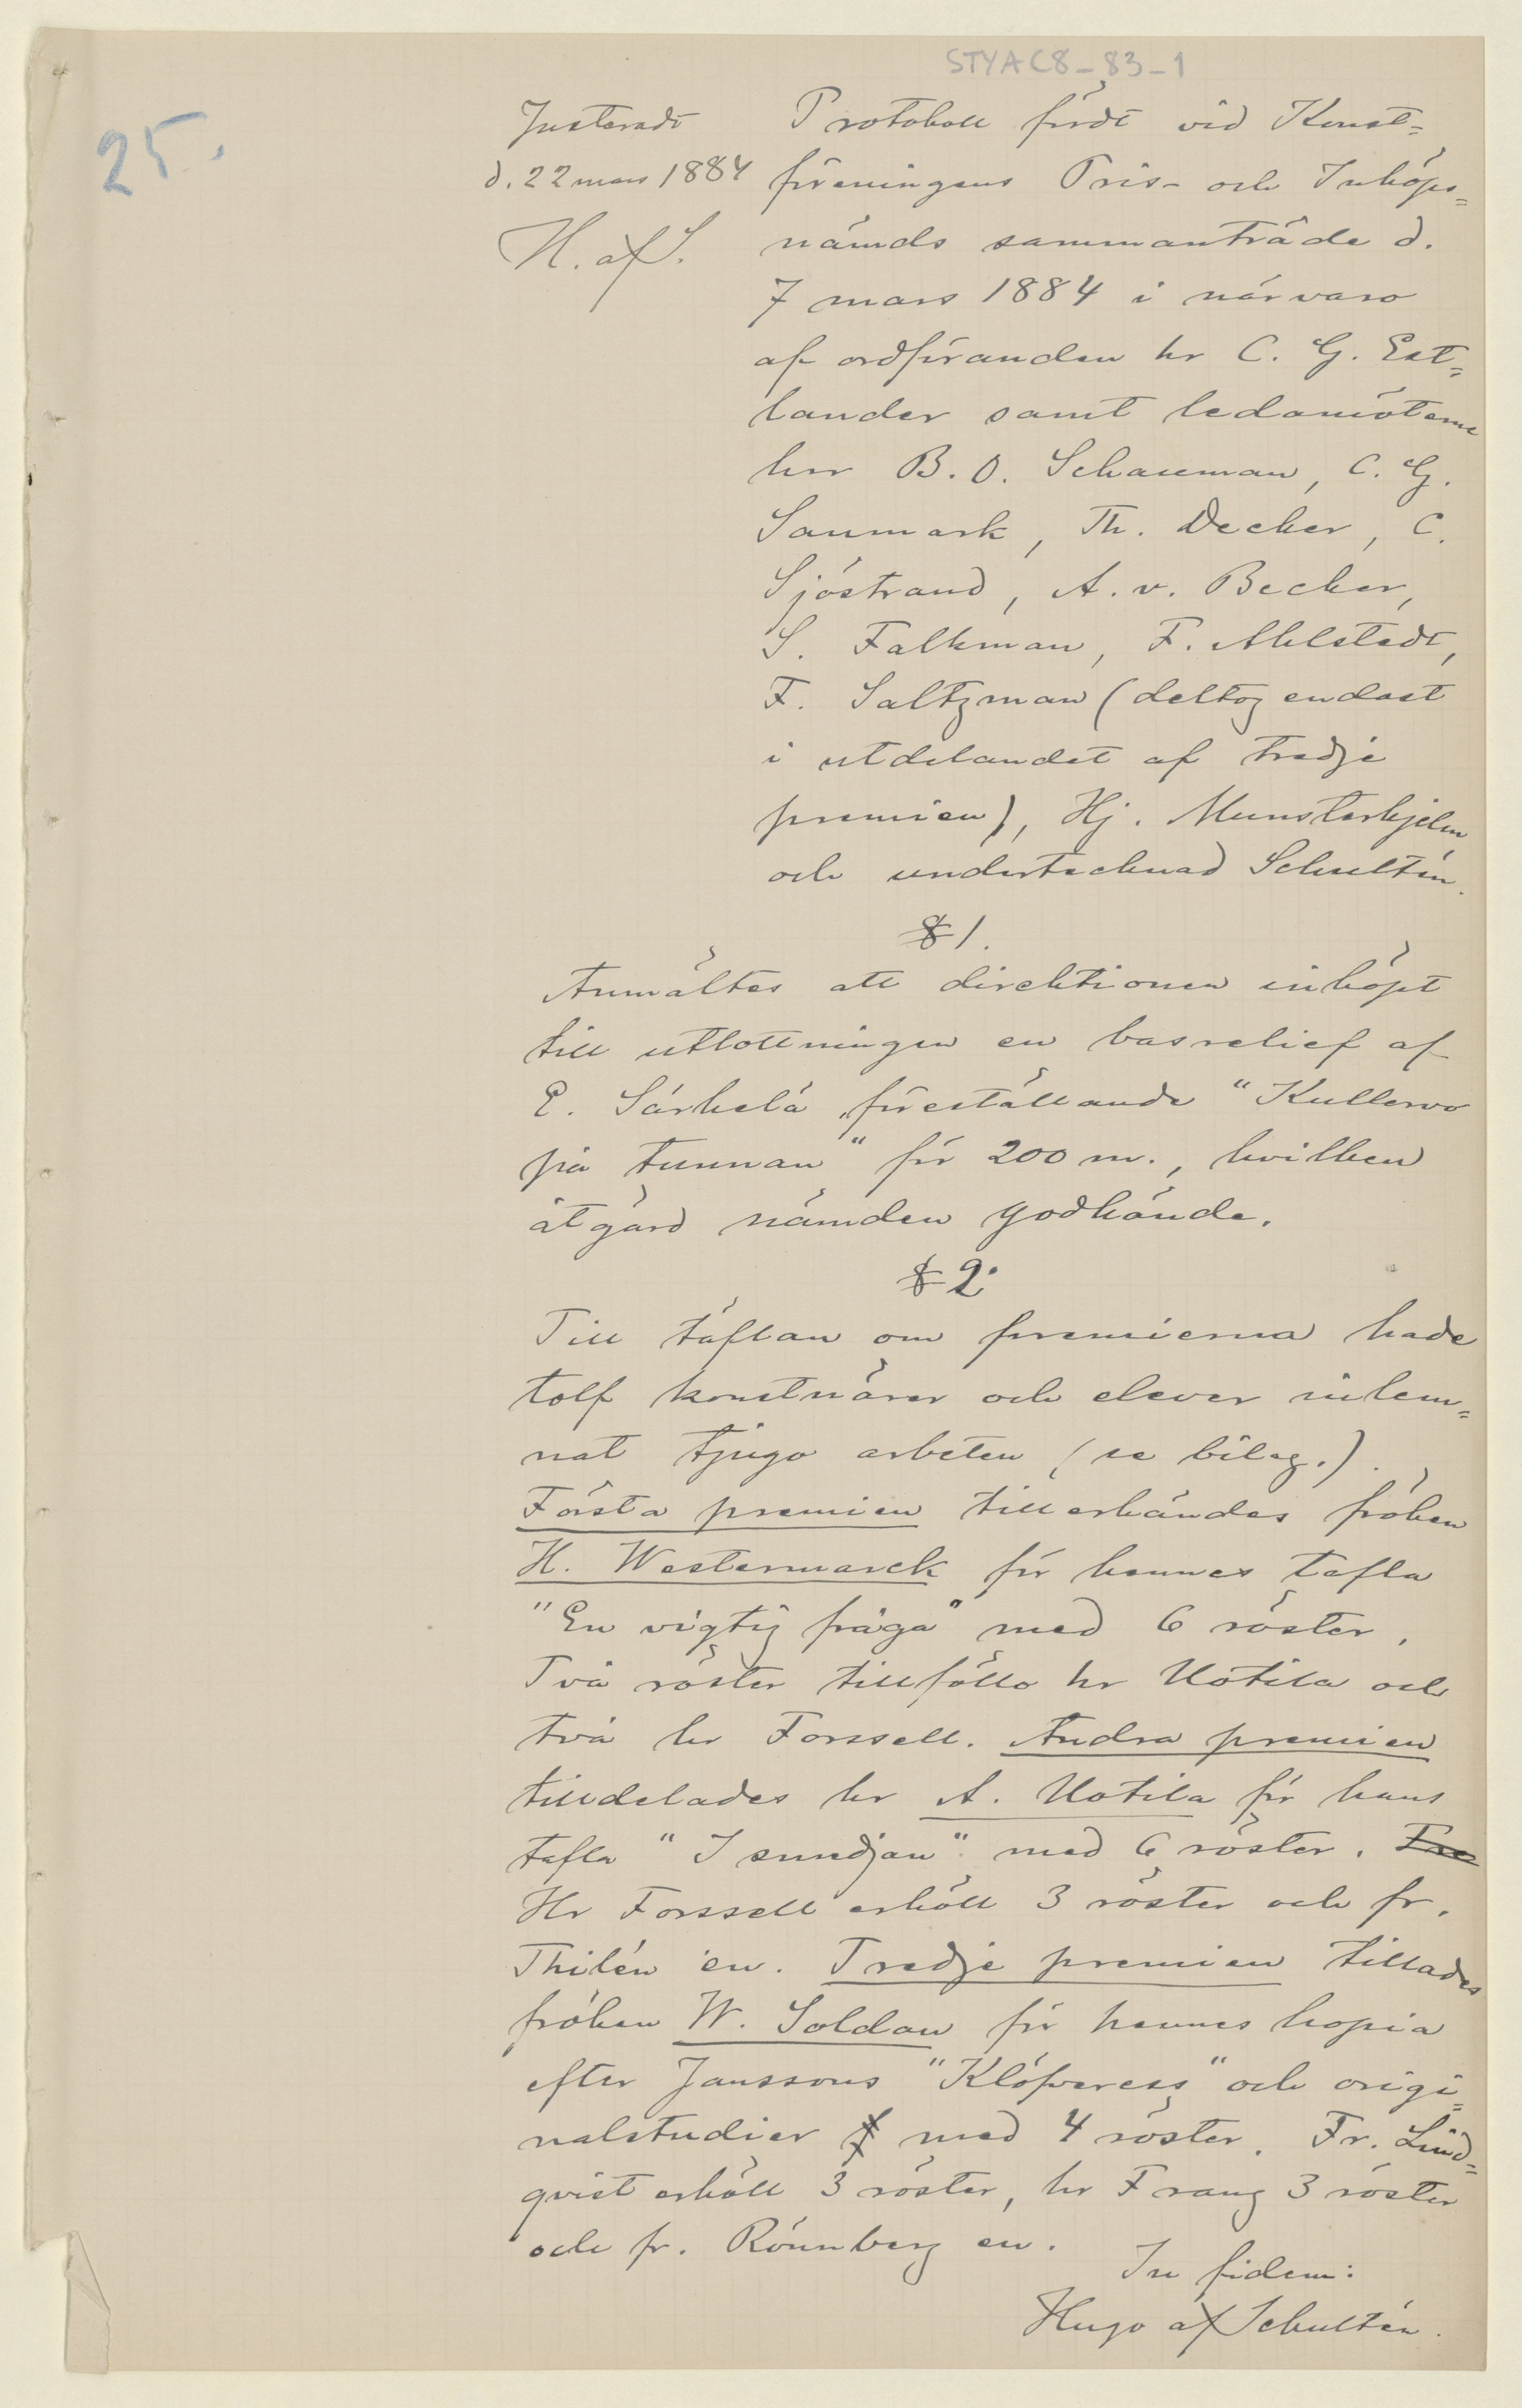 STYAC8-83-1
25.
Justeradt
d. 22 mars 1884
H. af S.
Protokoll fördt vid Konst=
föreningens Pris- och Inköps=
nämds sammanträde d.
7 mars 1884 i närvaro
af ordföranden hr C. G. Est=
lander samt ledamöterne
hrr B. O. Schauman, C. G.
Sanmark, Th. Decker, C.
Sjöstrand, A. v. Becker,
S. Falkman, F. Ahlstedt,
F. Saltzman (deltog endast
i utdelandet af tredje
premien), Hj. Munsterhjelm
och undertecknad Schultén.
§ 1.
Anmältes att direktionen inköpt
till utlottningen en basrelief af
E. Särkelä, föreställande "Kullervo
på tunnan" för 200 m., hvilken
åtgärd nämden godkände.
§ 2.
Till täflan om premierna hade
tolf konstnärer och elever inlem=
nat tjugo arbeten (se bilag.).
Första premien tillerkändes fröken
H. Westermarck för hennes tafla
"En vigtig fråga" med 6 röster.
Två röster tillföllo hr Uotila och
två hr Forssell. Andra premien
tilldelades hr A. Uotila för hans
tafla "I smedjan" med 6 röster. Tre
Hr Forssell erhöll 3 röster och fr.
Thilén en. Tredje premien tillades
fröken W. Soldan för hennes kopia
efter Janssons "Klöfveress" och origi=
nalstudier med 4 röster. Fr. Lind=
qvist erhöll 3 röster, hr Frang 3 röster
och fr. Rönnberg en.
In fidem:
Hugo af Schultén.